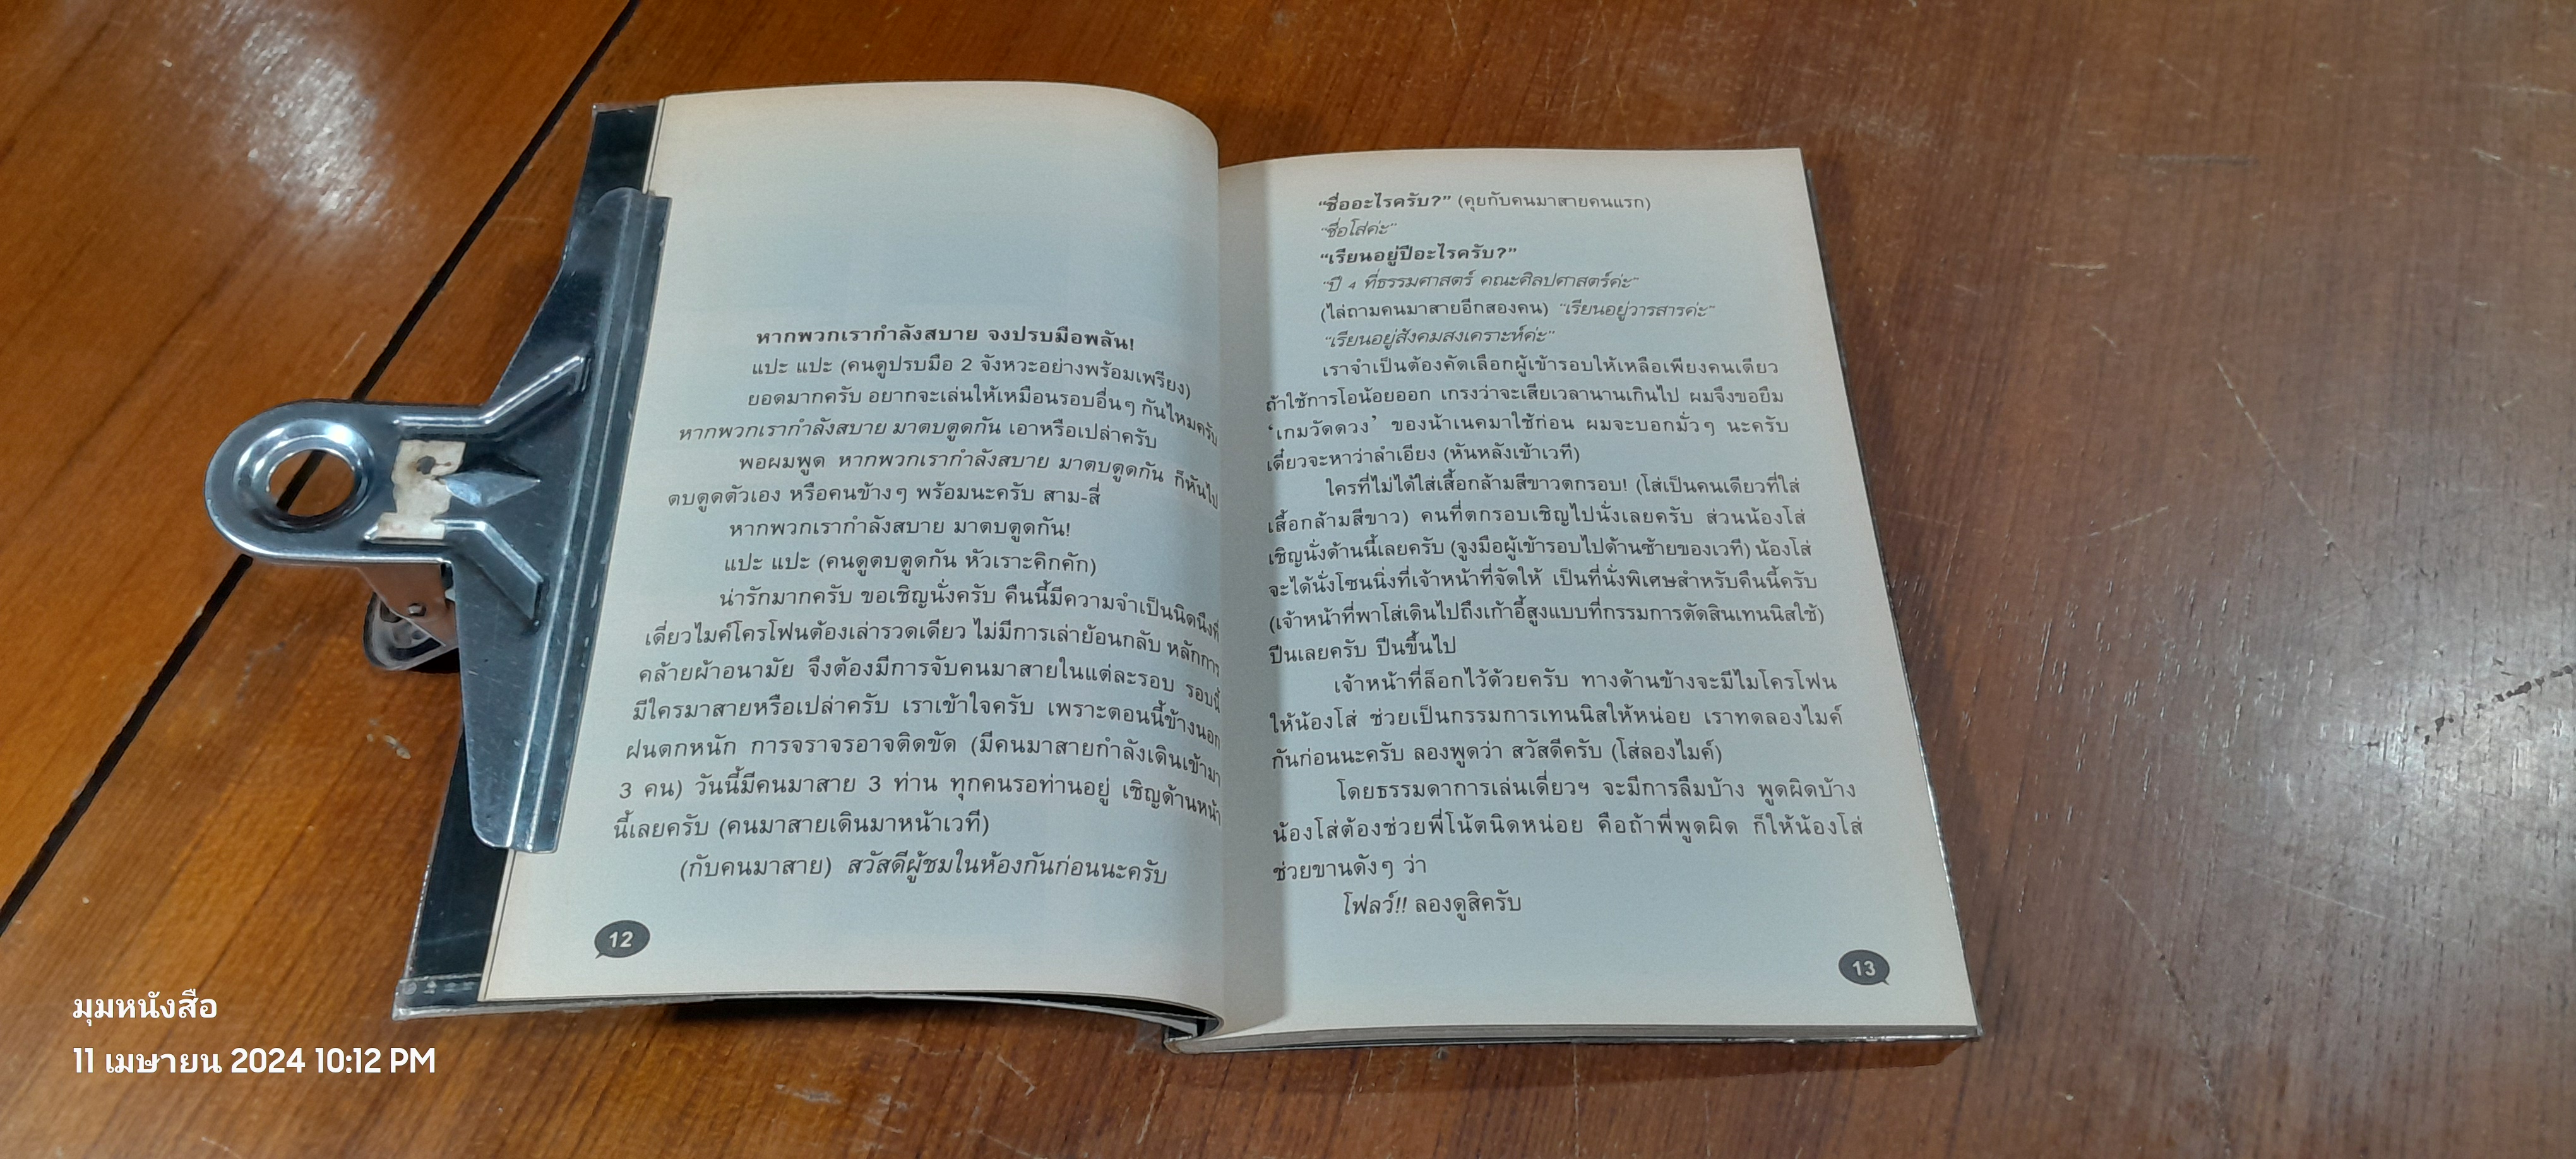 หากพวกเรากำลังสบาย จงปรบมือพลัน!
แปะ แปะ (คนดูปรบมือ 2 จังหวะอย่างพร้อมเพรียง)
ยอดมากครับ อยากจะเล่นให้เหมือนรอบอื่นๆ กันไหมครับ
หากพวกเรากำลังสบาย มาตบตูดกัน เอาหรือเปล่าครับ
พอผมพูด หากพวกเรากำลังสบาย มาตบตูดกัน ก็หันไป
ตบตูดตัวเอง หรือคนข้างๆ พร้อมนะครับ สาม-สี่
หากพวกเรากำลังสบาย มาตบตูดกัน!
แปะ แปะ (คนดูตบตูดกัน หัวเราะคิกคัก)
น่ารักมากครับ ขอเชิญนั่งครับ คืนนี้มีความจำเป็นนิดนึงที่
เดี่ยวไมค์โครโฟนต้องเล่ารวดเดียว ไม่มีการเล่าย้อนกลับ หลักการ
คล้ายผ้าอนามัย จึงต้องมีการจับคนมาสายในแต่ละรอบ รอบนี้
มีใครมาสายหรือเปล่าครับ เราเข้าใจครับ เพราะตอนนี้ข้างนอก
ฝนตกหนัก การจราจรอาจติดขัด (มีคนมาสายกำลังเดินเข้ามา
3 คน) วันนี้มีคนมาสาย 3 ท่าน ทุกคนรอท่านอยู่ เชิญด้านหน้า
นี้เลยครับ (คนมาสายเดินมาหน้าเวที)
(กับคนมาสาย) สวัสดีผู้ชมในห้องกันก่อนนะครับ
12
“ชื่ออะไรครับ?” (คุยกับคนมาสายคนแรก)
“ชื่อโส่ค่ะ”
“เรียนอยู่ปีอะไรครับ?”
“ปี 4 ที่ธรรมศาสตร์ คณะศิลปศาสตร์ค่ะ”
(ไล่ถามคนมาสายอีกสองคน) “เรียนอยู่วารสารค่ะ”
“เรียนอยู่สังคมสงเคราะห์ค่ะ”
เราจำเป็นต้องคัดเลือกผู้เข้ารอบให้เหลือเพียงคนเดียว
ถ้าใช้การโอน้อยออก เกรงว่าจะเสียเวลานานเกินไป ผมจึงขอยืม
‘เกมวัดดวง’ ของน้าเนคมาใช้ก่อน ผมจะบอกมั่วๆ นะครับ
เดี๋ยวจะหาว่าลำเอียง (หันหลังเข้าเวที)
ใครที่ไม่ได้ใส่เสื้อกล้ามสีขาวตกรอบ! (โส่เป็นคนเดียวที่ใส่
เสื้อกล้ามสีขาว) คนที่ตกรอบเชิญไปนั่งเลยครับ ส่วนน้องโส่
เชิญนั่งด้านนี้เลยครับ (จูงมือผู้เข้ารอบไปด้านซ้ายของเวที) น้องโส่
จะได้นั่งโซนนิ่งที่เจ้าหน้าที่จัดให้ เป็นที่นั่งพิเศษสำหรับคืนนี้ครับ
(เจ้าหน้าที่พาโส่เดินไปถึงเก้าอี้สูงแบบที่กรรมการตัดสินเทนนิสใช้)
ปีนเลยครับ ปีนขึ้นไป
เจ้าหน้าที่ล็อกไว้ด้วยครับ ทางด้านข้างจะมีไมโครโฟน
ให้น้องโส่ ช่วยเป็นกรรมการเทนนิสให้หน่อย เราทดลองไมค์
กันก่อนนะครับ ลองพูดว่า สวัสดีครับ (โส่ลองไมค์)
โดยธรรมดาการเล่นเดี่ยวฯ จะมีการลืมบ้าง พูดผิดบ้าง
น้องโส่ต้องช่วยพี่โน้ตนิดหน่อย คือถ้าพี่พูดผิด ก็ให้น้องโส่
ช่วยขานดังๆ ว่า
โฟลว์!! ลองดูสิครับ
13
มุมหนังสือ
11 เมษายน 2024 10:12 PM